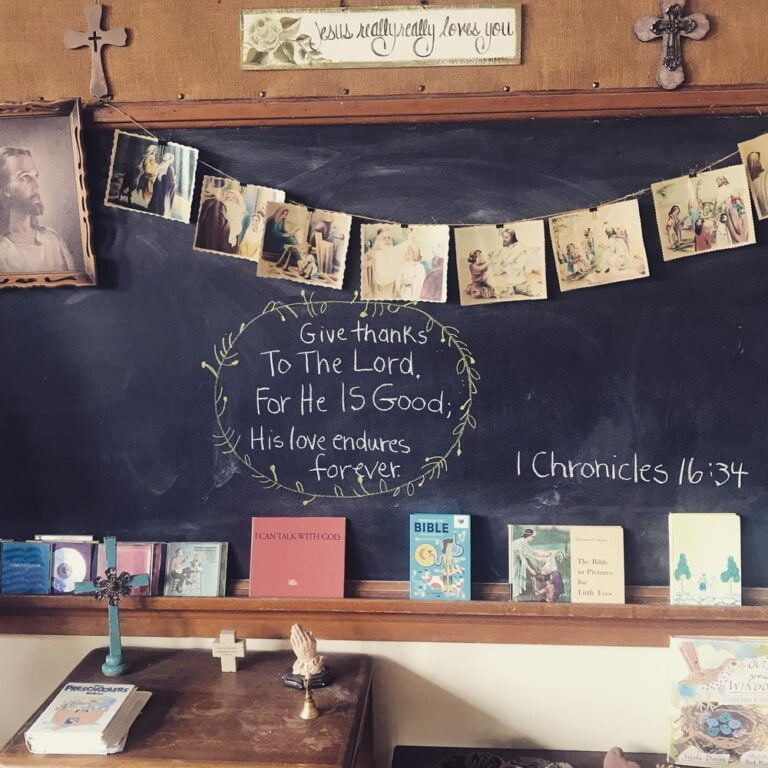 Jesus really really loves you
Give thanks
To The Lord.
For He IS Good;
His love endures
forever
1 Chronicles 16:34
I CAN TALK WITH GOD
BIBLE
The Bible
in Pictures
for
Little Eyes
PRESCHOOLERS
BIBLE
OUT
YOUR
WINDOW